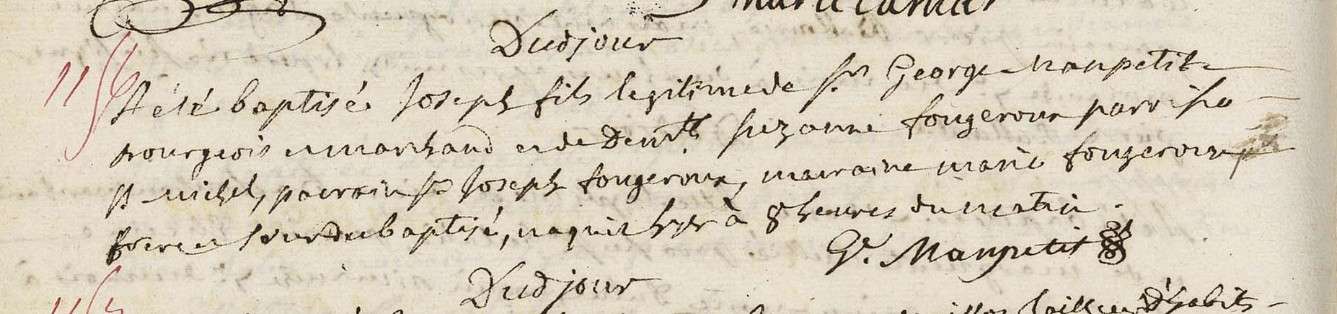 Dudjour
A été baptisé Joseph fils legitime de Sr George Maupetit
bourgeois et marchand et de Demlle Suzanne fougeroux parroisse
St michel, parrain Sr Joseph fougeroux, marraine marie fougeroux
frere et sour du baptisé, naquit hyer à 8 heures du matin.
Ge. Maupetit
Dudjour
d'habits